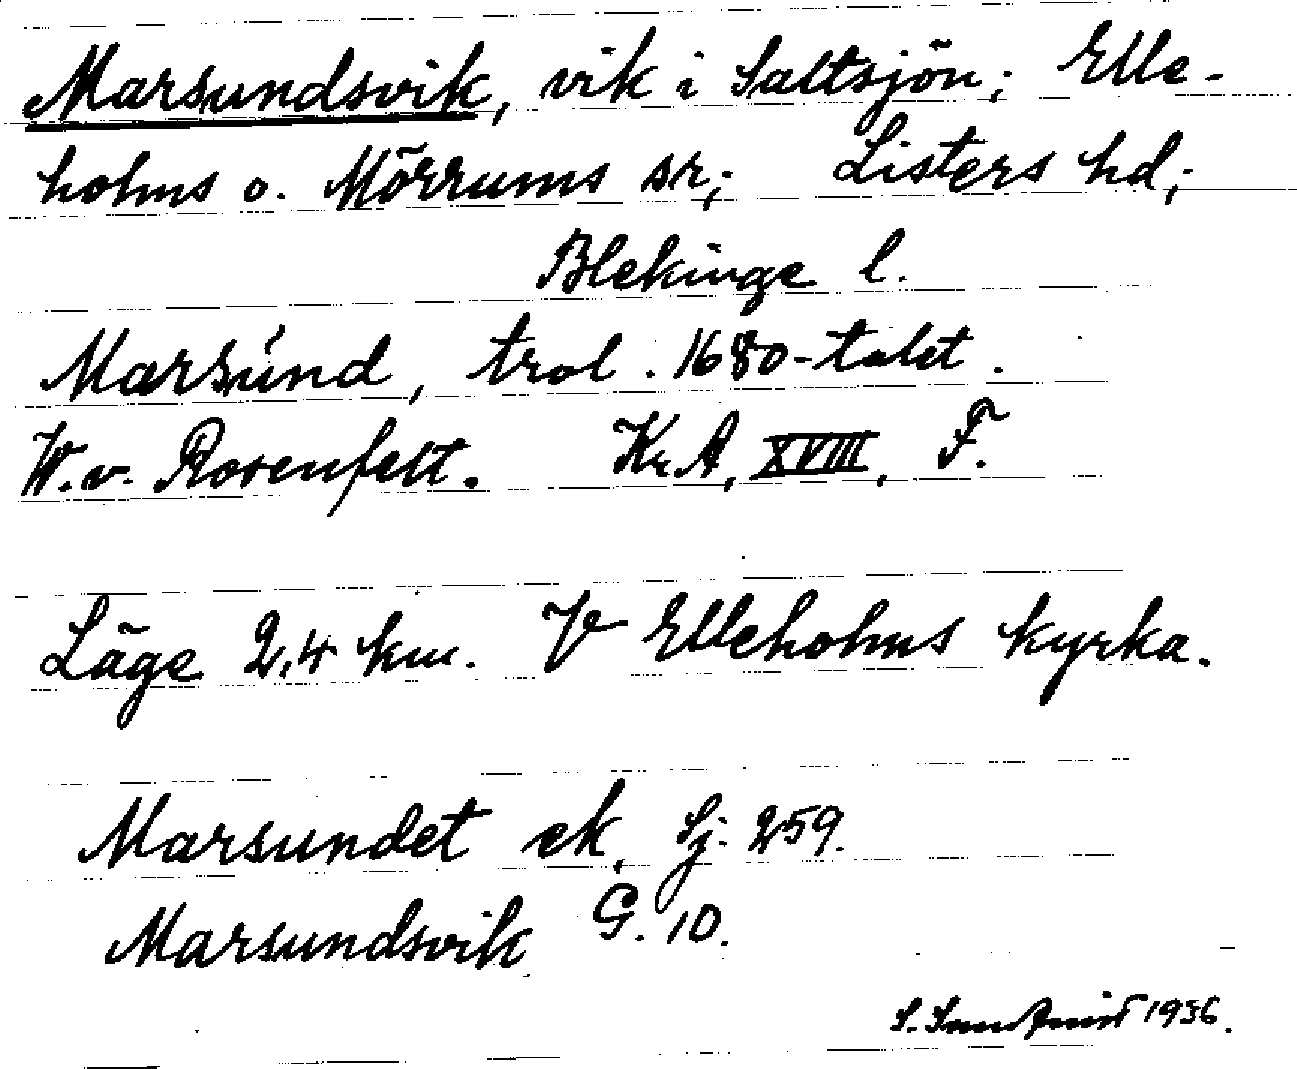 Marsundsvik, vik i Saltsjön; Elle-
holms o. Mörrums sr; Listers hd;
Blekinge l.
Marsúnd, trol. 1680-talet.
W. v. Rosenfelt. Kr.A, XVIII, F.
Läge 2,4 km. V Elleholms kyrka.
Marsundet ek. Sj. 259.
Marsundsvik G. 10.
S. 1936.